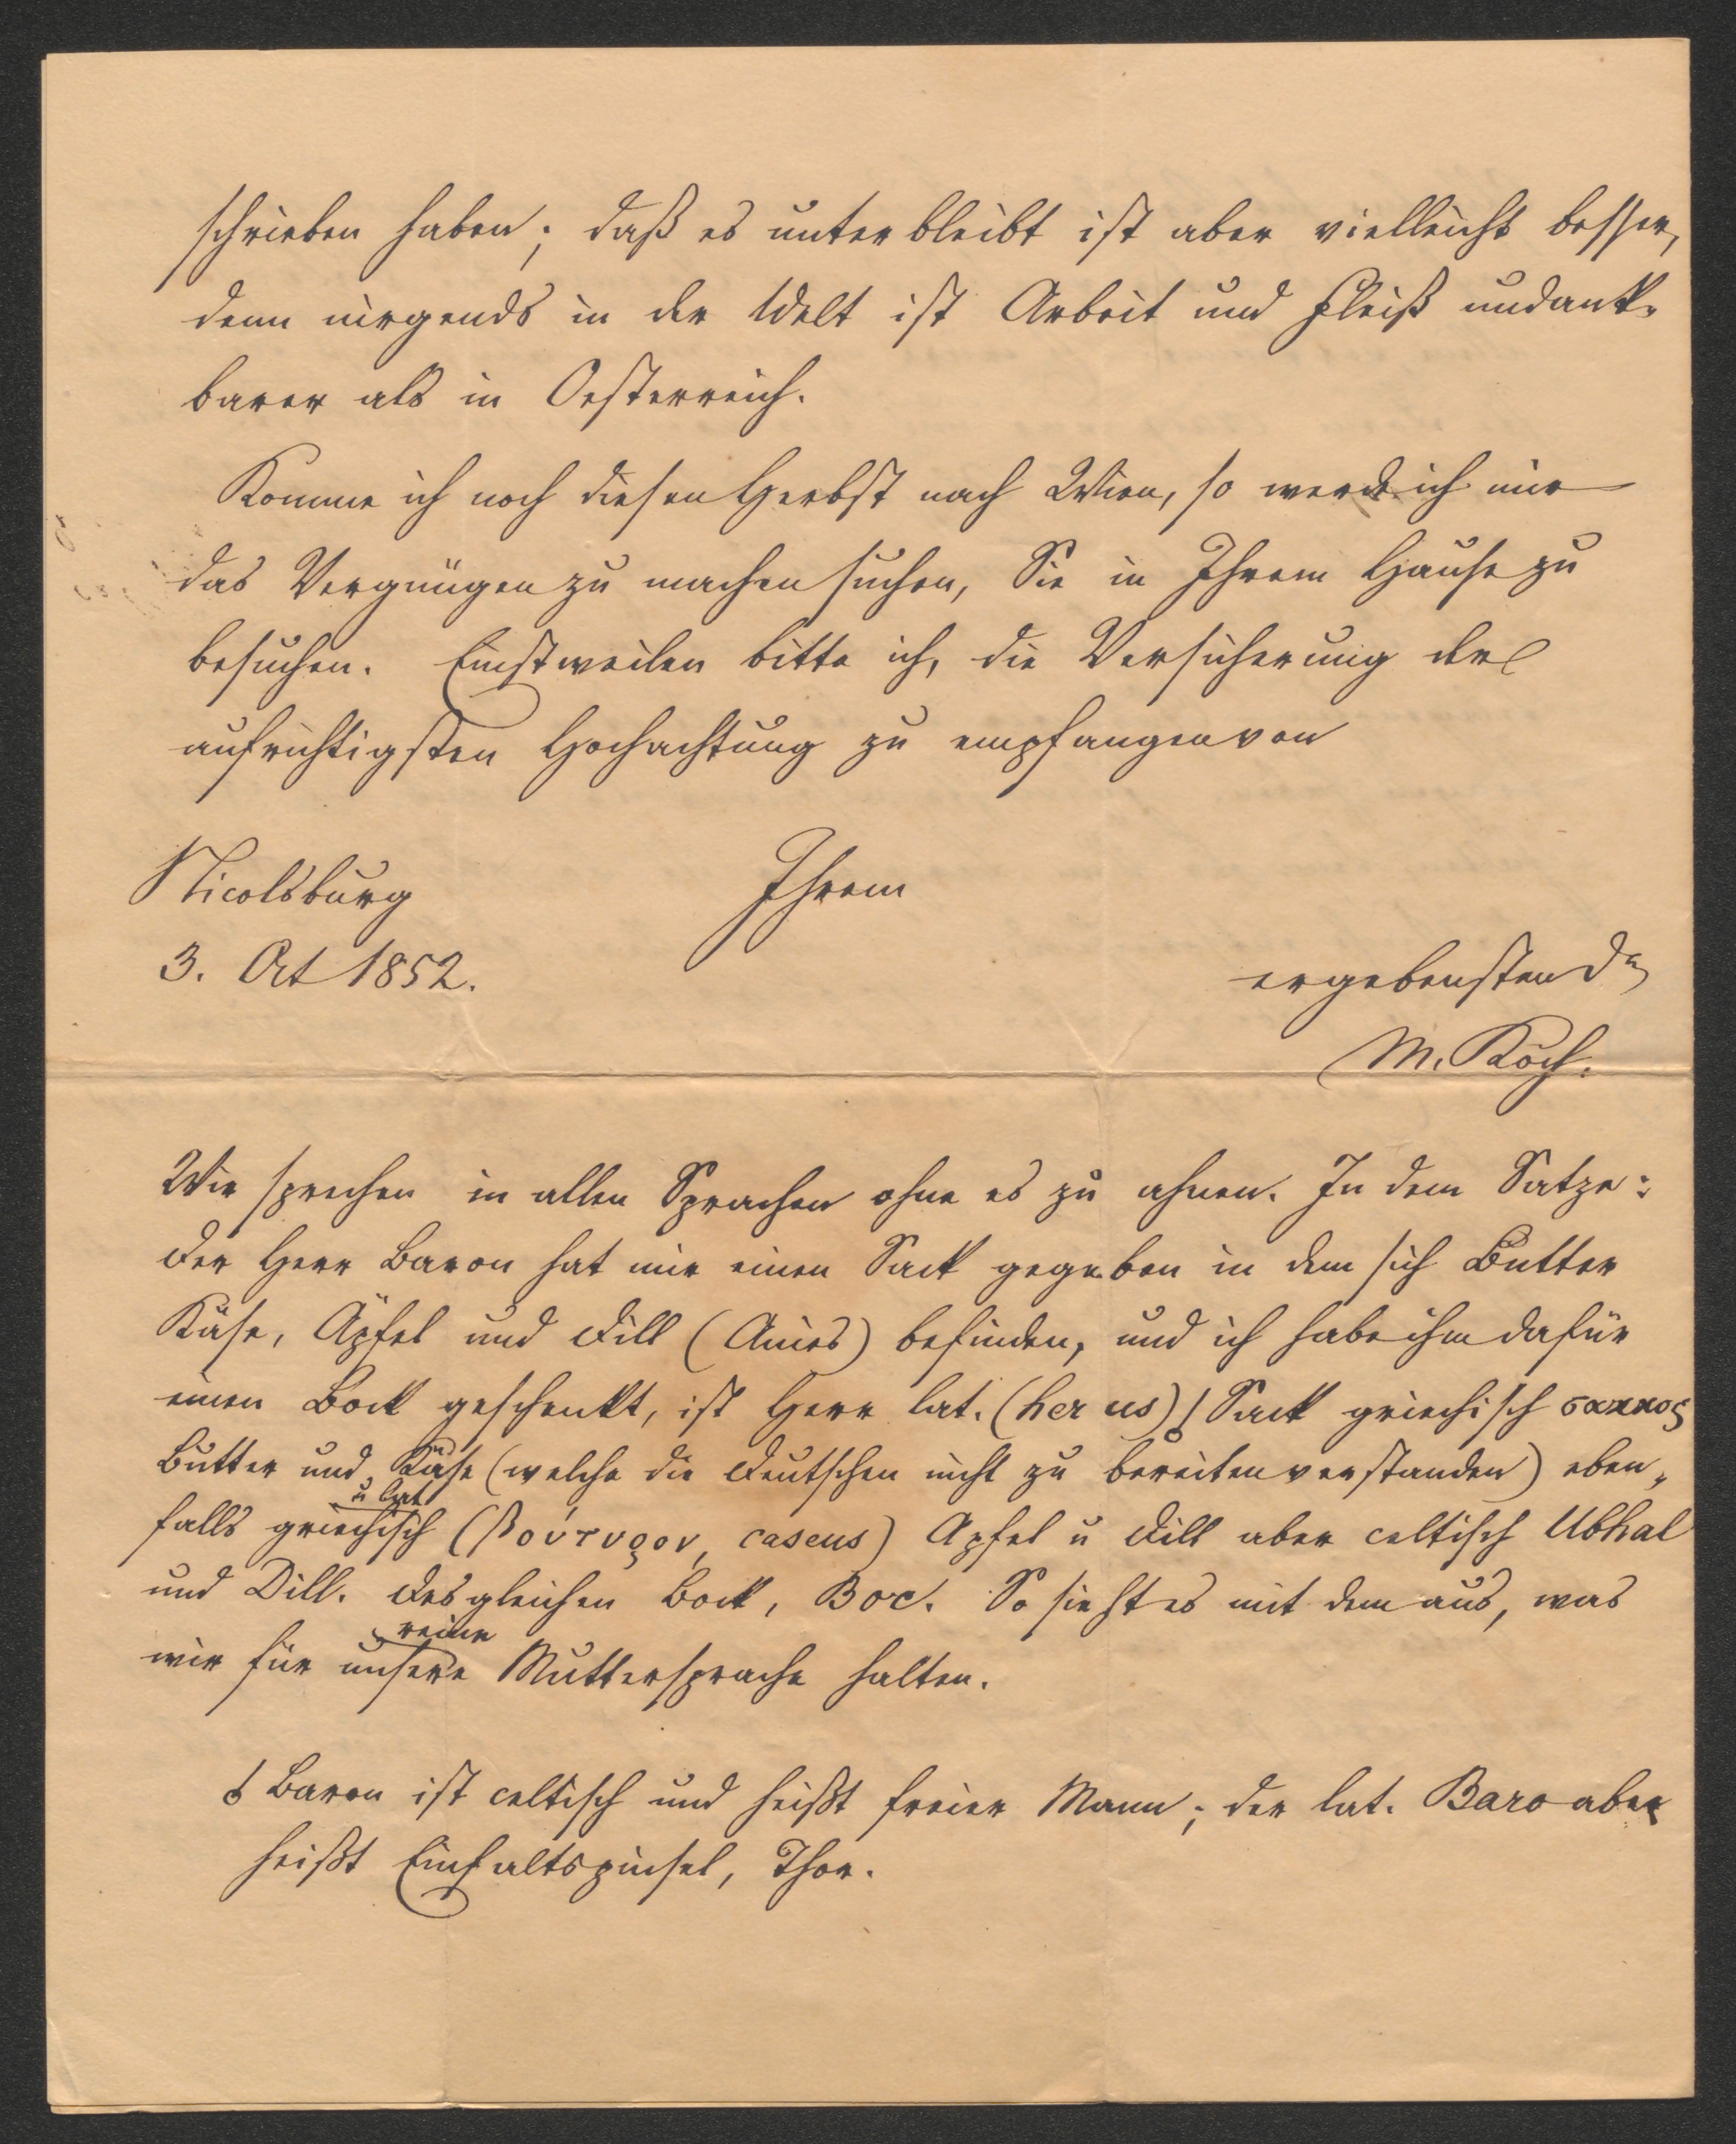 schrieben haben; daß es unterbleibt ist aber vielleicht besser,
denn nirgends in der Welt ist Arbeit und Fleiß undank-
barer als in Oesterreich.
Komme ich noch diesen Herbst nach Wien, so werde ich mir
das Vergnügen zu machen suchen, Sie in Ihrem Hause zu
besuchen. Einstweilen bitte ich, die Versicherung der
aufrichtigsten Hochachtung zu empfangen von
Nicolsburg
3. Oct 1852.
Ihrem
ergebensten Dr
M. Koch.
Wir sprechen in allen Sprachen ohne es zu ahnen. In dem Satze:
der Herr Baron hat mir einen Sack gegeben in dem sich Butter
Käse, Äpfel und Dill (Anies) befinden, und ich habe ihm dafür
einen Bock geschenkt, ist Herr lat. (herus) Sack griechisch σακκος
Butter und Käse (welche die Deutschen nicht zu bereiten verstanden) eben-
u lat
falls griechisch (βούτυρον, caseus) Apfel u Dill aber celtisch Ubhal
und Dill. desgleichen Bock, Boc. So sieht es mit dem aus, was
reine
wir für unsere Muttersprache halten.
Baron ist celtisch und heißt freier Mann; der lat. Baro aber
heißt Einfaltspinsel, Thor.